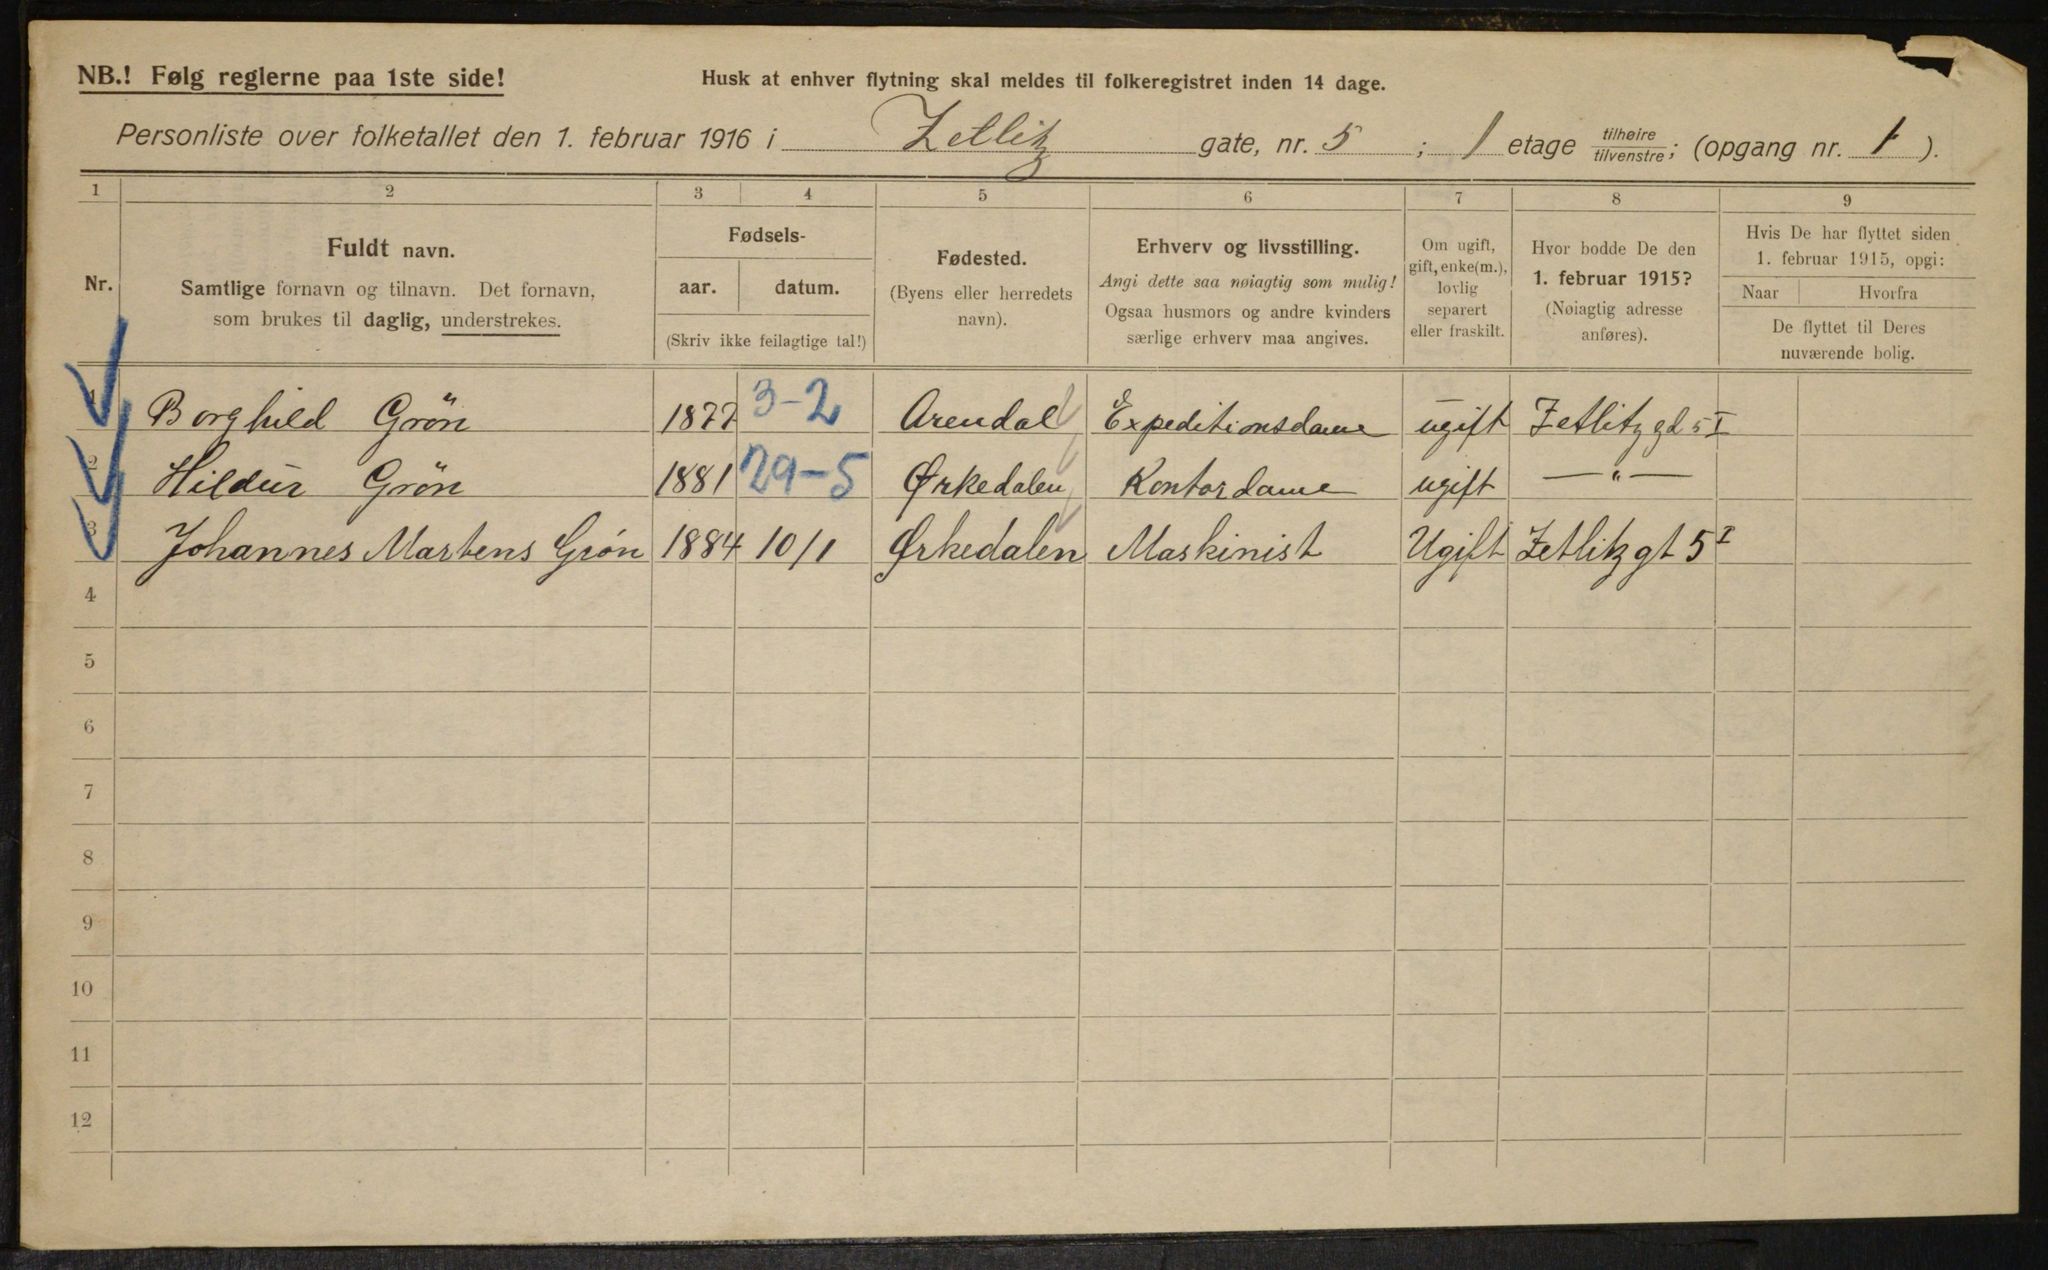 NB.! Følg reglerne paa 1ste side!
Husk at enhver flytning skal meldes til folkeregistret inden 14 dage.
Personliste over folketallet den 1. februar 1916 i Zetlitz gate, nr. 5 ; 1 etage tilhøire/tilvenstre; (opgang nr. 1 ).
1 2 3 4 5 6 7 8 9
Nr.
Fuldt navn.
Samtlige fornavn og tilnavn. Det fornavn,
som brukes til daglig, understrekes.
Fødsels-
aar. datum.
(Skriv ikke feilagtige tal!)
Fødested.
(Byens eller herredets
navn).
Erhverv og livsstilling.
Angi dette saa nøiagtig som mulig!
Ogsaa husmors og andre kvinders
særlige erhverv maa angives.
Om ugift,
gift, enke(m.),
lovlig
separert
eller fraskilt.
Hvor bodde De den
1. februar 1915?
(Nøiagtig adresse
anføres).
Hvis De har flyttet siden
1. februar 1915, opgi:
Naar Hvorfra
De flyttet til Deres
nuværende bolig.
1 Borghild Grön 1877 3-2 Arendal Expeditionsdame ugift Zetlitz gd 5 I
2 Hildur Grön 1881 29-5 Ørkedalen Kontordame ugift — " —
3 Johannes Martens Grön 1884 10/1 Ørkedalen Maskinist Ugift Zetlitz gt 5 I
4
5
6
7
8
9
10
11
12